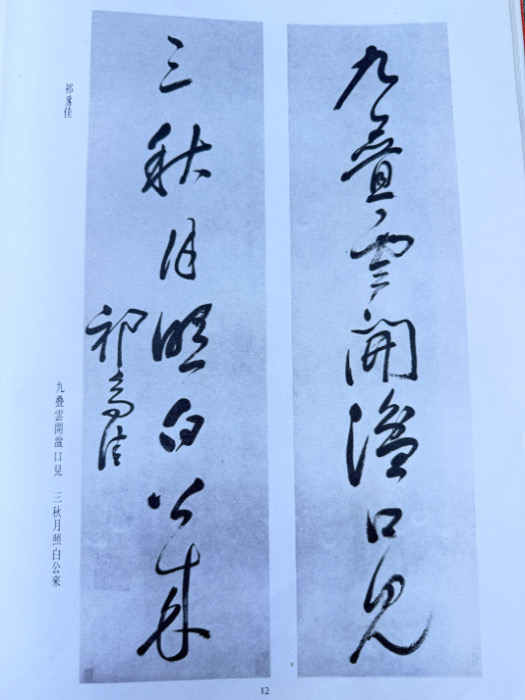 九疊雲開湓口見
三秋月照白公來
祁豸佳
祁豸佳
九疊雲開湓口見 三秋月照白公來
12